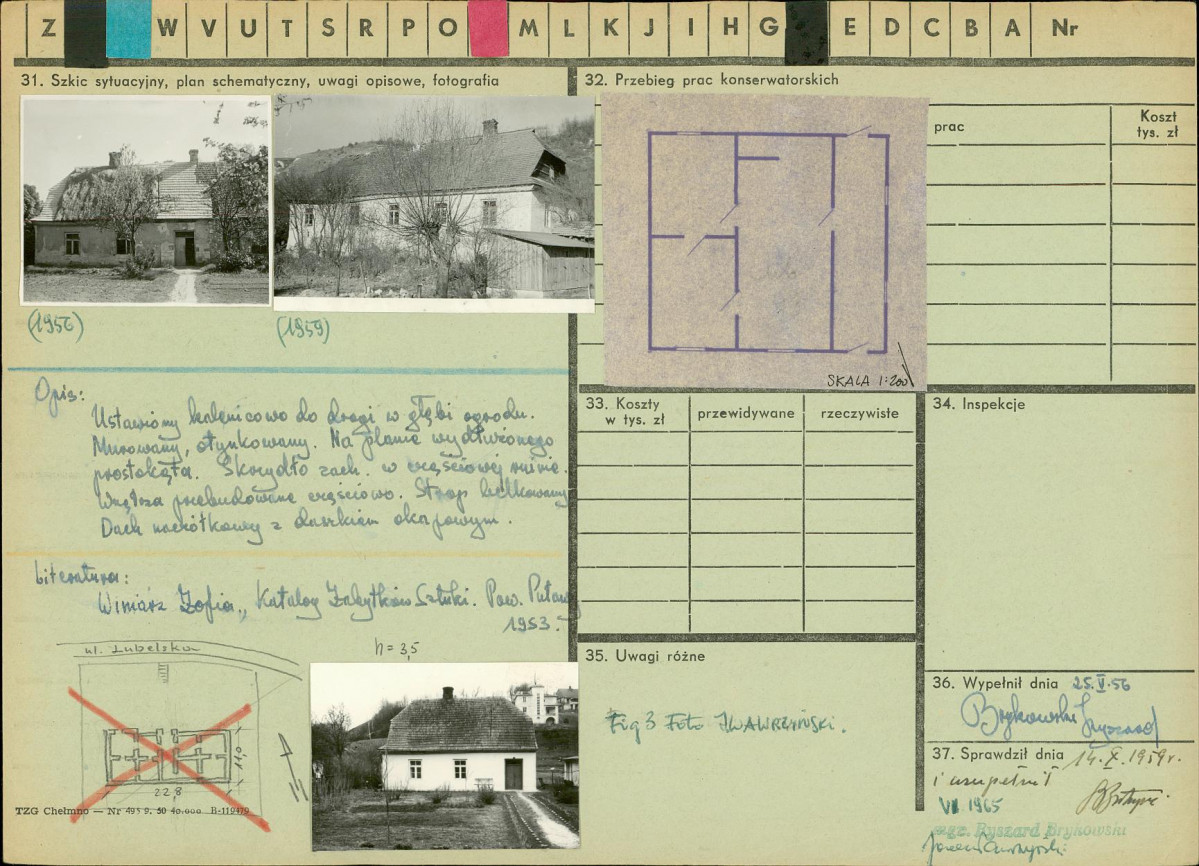 Z W V U T S R P O M L K J I H G E D C B A Nr
31. Szkic sytuacyjny, plan schematyczny, uwagi opisowe, fotografia
(1956)
(1959)
Opis:
Ustawiony kalenicowo do drogi w głębi ogrodu.
Murowany, otynkowany. Na planie wydłużonego
prostokąta. Skrzydło zach. w częściowej ruinie.
Wnętrza przebudowane częściowo. Strop belkowany
Dach naczółkowy z daszkiem okapowym.
Literatura:
Winiarz Zofia, Katalog Zabytków Sztuki. Pow. Puławy
1953.
ul. Lubelska
h = 3,5
11,0
22,8
TZG Chełmno — Nr 495 9. 50 40.000 B-119479
32. Przebieg prac konserwatorskich
prac
Koszt
tys. zł
SKALA 1:200
33. Koszty
w tys. zł
przewidywane
rzeczywiste
34. Inspekcje
35. Uwagi różne
Fig 3 Foto J WAWRZYŃSKI.
36. Wypełnił dnia 25.V.56
Brykowski Ryszard
37. Sprawdził dnia 14.X.1959r.
i uzupełnił
VI 1965
mgr. Ryszard Brykowski